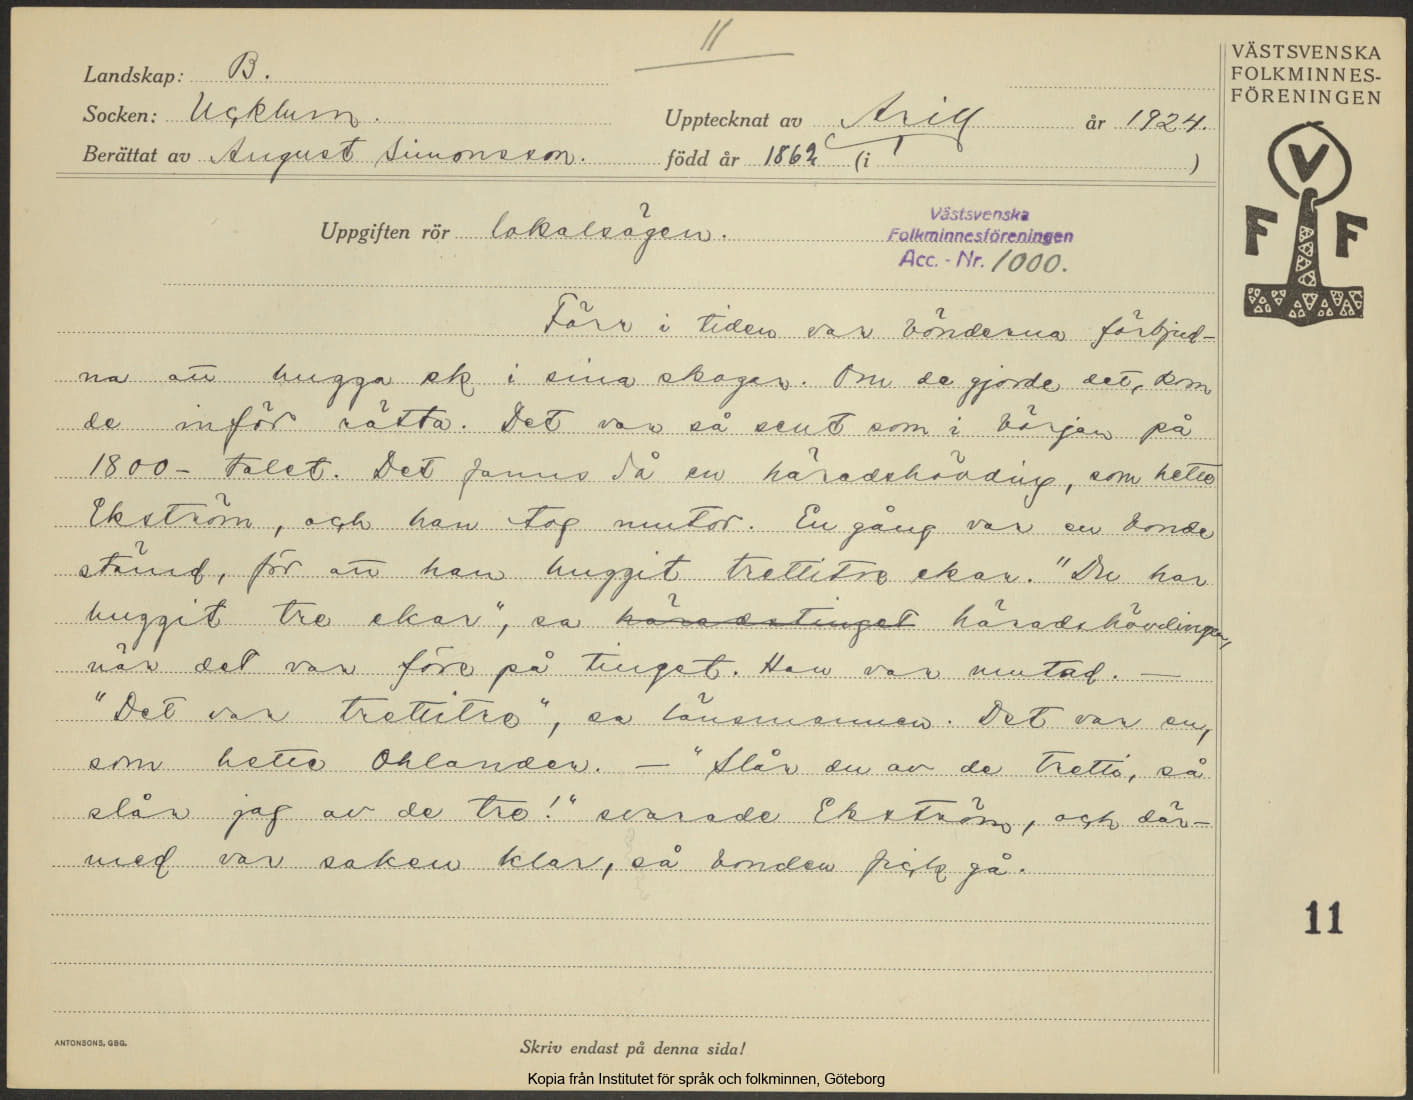 11
Landskap: B.
Socken: Ucklum.
Upptecknat av Arill år 1924.
Berättat av August Simonsson. född år 1862 (i )
VÄSTSVENSKA
FOLKMINNES-
FÖRENINGEN
V
F F
Uppgiften rör lokalsägen.
Västsvenska
Folkminnesföreningen
Acc. - Nr. 1000.
Förr i tiden var bönderna förbjud-
na att hugga ek i sina skogar. Om de gjorde det, kom
de inför rätta. Det var så sent som i början på
1800-talet. Det fanns då en häradshövding, som hette
Ekström, och han tog mutor. En gång var en bonde
stämd, för att han huggit trettitre ekar. "Du har
huggit tre ekar", sa häradstinget häradshövdingen,
när det var före på tinget. Han var mutad. —
"Det var trettitre", sa länsmannen. Det var en,
som hette Ohlander. — "Slår du av de tretti, så
slår jag av de tre!" svarade Ekström, och där-
med var saken klar, så bonden fick gå.
11
ANTONSONS, GBG.
Skriv endast på denna sida!
Kopia från Institutet för språk och folkminnen, Göteborg